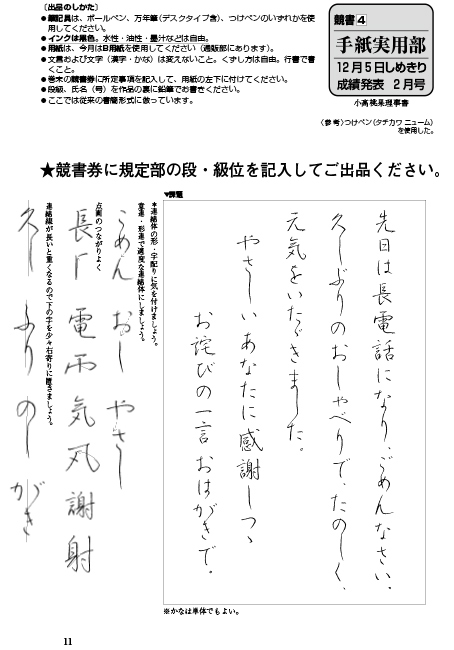 〔出品のしかた〕
●筆記具は、ボールペン、万年筆(デスクタイプ含)、つけペンのいずれかを使用してください。
●インクは黒色。水性・油性・墨汁などは自由。
●用紙は、今月はB用紙を使用してください(通販部にあります)。
●文意および文字(漢字・かな)は変えないこと。くずし方は自由。行書で書くこと。
●巻末の競書券に所定事項を記入して、用紙の左下に付けてください。
●段級、氏名(号)を作品の裏に鉛筆でお書きください。
●ここでは従来の書簡形式に倣っています。
競書4
手紙実用部
12月5日しめきり
成績発表 2月号
小高桃果理事書
〈参考〉つけペン(タチカワ ニューム)
を使用した。
★競書券に規定部の段・級位を記入してご出品ください。
▼課題
先日は長電話になり、ごめんなさい。
久しぶりのおしゃべりで、たのしく、
元気をいただきました。
やさしいあなたに感謝しつゝ
お詫びの一言おはがきで。
※かなは単体でもよい。
*連綿体の形・字配りに気を付けましょう。
意連・形連で適度な連綿体にしましょう。
ごめん おし やさし
左画のつながりよく
長 電 雨 気 謝 射
連綿線が長いと重くなるので下の字を少々右寄りに置きましょう。
久し ぶり のし がき
11